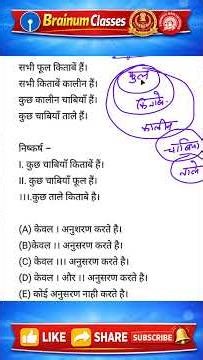 Brainum Classes
सभी फूल किताबें हैं।
सभी किताबें कालीन हैं।
कुछ कालीन चाबियाँ हैं।
कुछ चाबियाँ ताले हैं।
फूल
किताबे
कालीन
चाबियाँ
ताले
निष्कर्ष –
I. कुछ चाबियाँ किताबें हैं।
II. कुछ चाबियाँ फूल हैं।
III.कुछ ताले किताबे है।
(A) केवल I अनुशरण करते है।
(B)केवल II अनुसरण करते है।
(C) केवल III अनुसरण करते है।
(D) केवल I और II अनुसरण करते है।
(E) कोई अनुसरण नाही करते है।
LIKE SHARE SUBSCRIBE